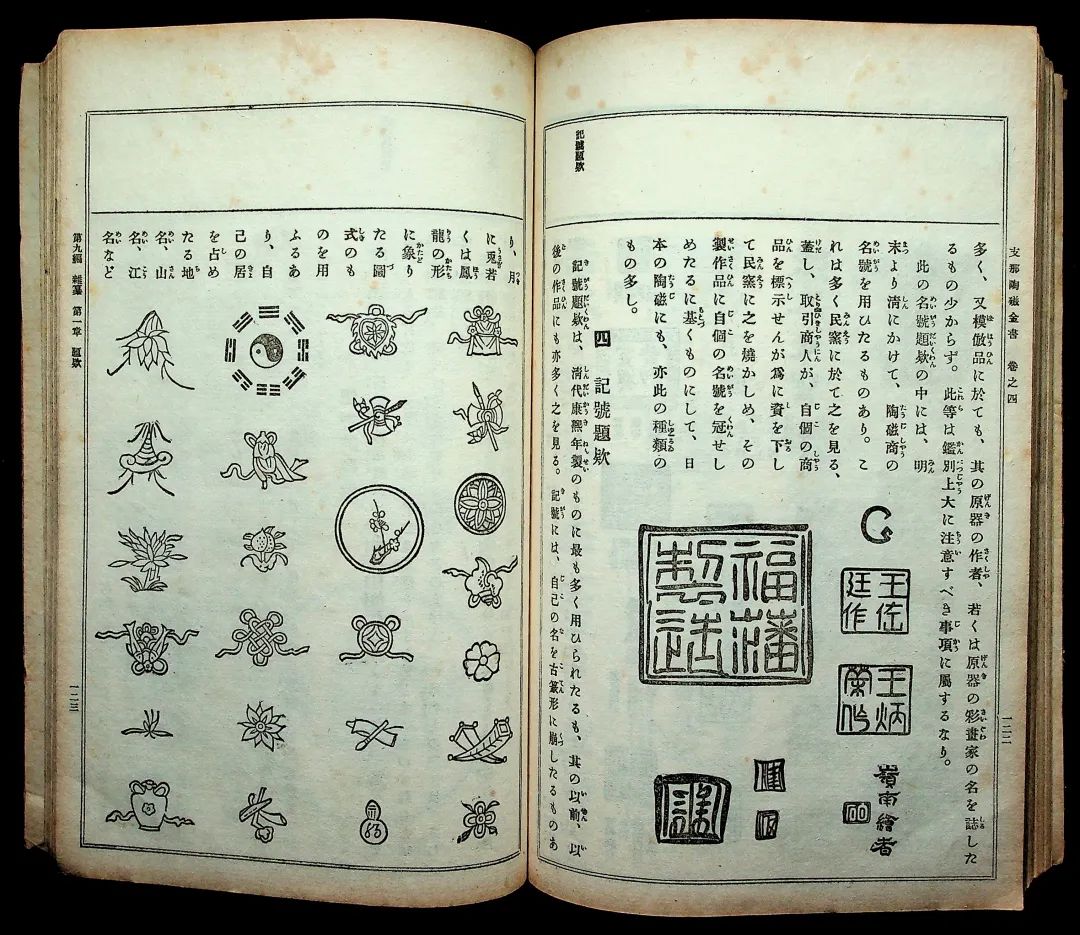 支那陶磁全書 卷之四
一二二
多く、又模倣品に於ても、其の原器の作者、若くは原器の彩畫家の名を誌した
るもの少からず。此等は鑑別上大に注意すべき事項に屬するなり。
此の名號題欵の中には、明
末より清にかけて、陶磁商の
名號を用ひたるものあり。こ
れは多く民窯に於て之を見る、
蓋し、取引商人が、自個の商
品を標示せんが爲に資を下し
て民窯に之を燒かしめ、その
製作品に自個の名號を冠せし
めたるに基くものにして、日
本の陶磁にも、亦此の種類の
もの多し。
王佐
廷作
王炳
榮作
嶺南繪者
福藩
製造
記號題欵
四 記號題欵
記號題欵は、清代康熙年製のものに最も多く用ひられたるも、其の以前、以
後の作品にも亦多く之を見る。記號には、自己の名を古篆形に崩したるものあ
り、月
に兎若
くは鳳
龍の形
に象り
たる圖
式のも
のを用
ふるあ
り、自
己の居
を占め
たる地
名、山
名、江
名など
第九編 雜纂 第一章 題欵
一二三